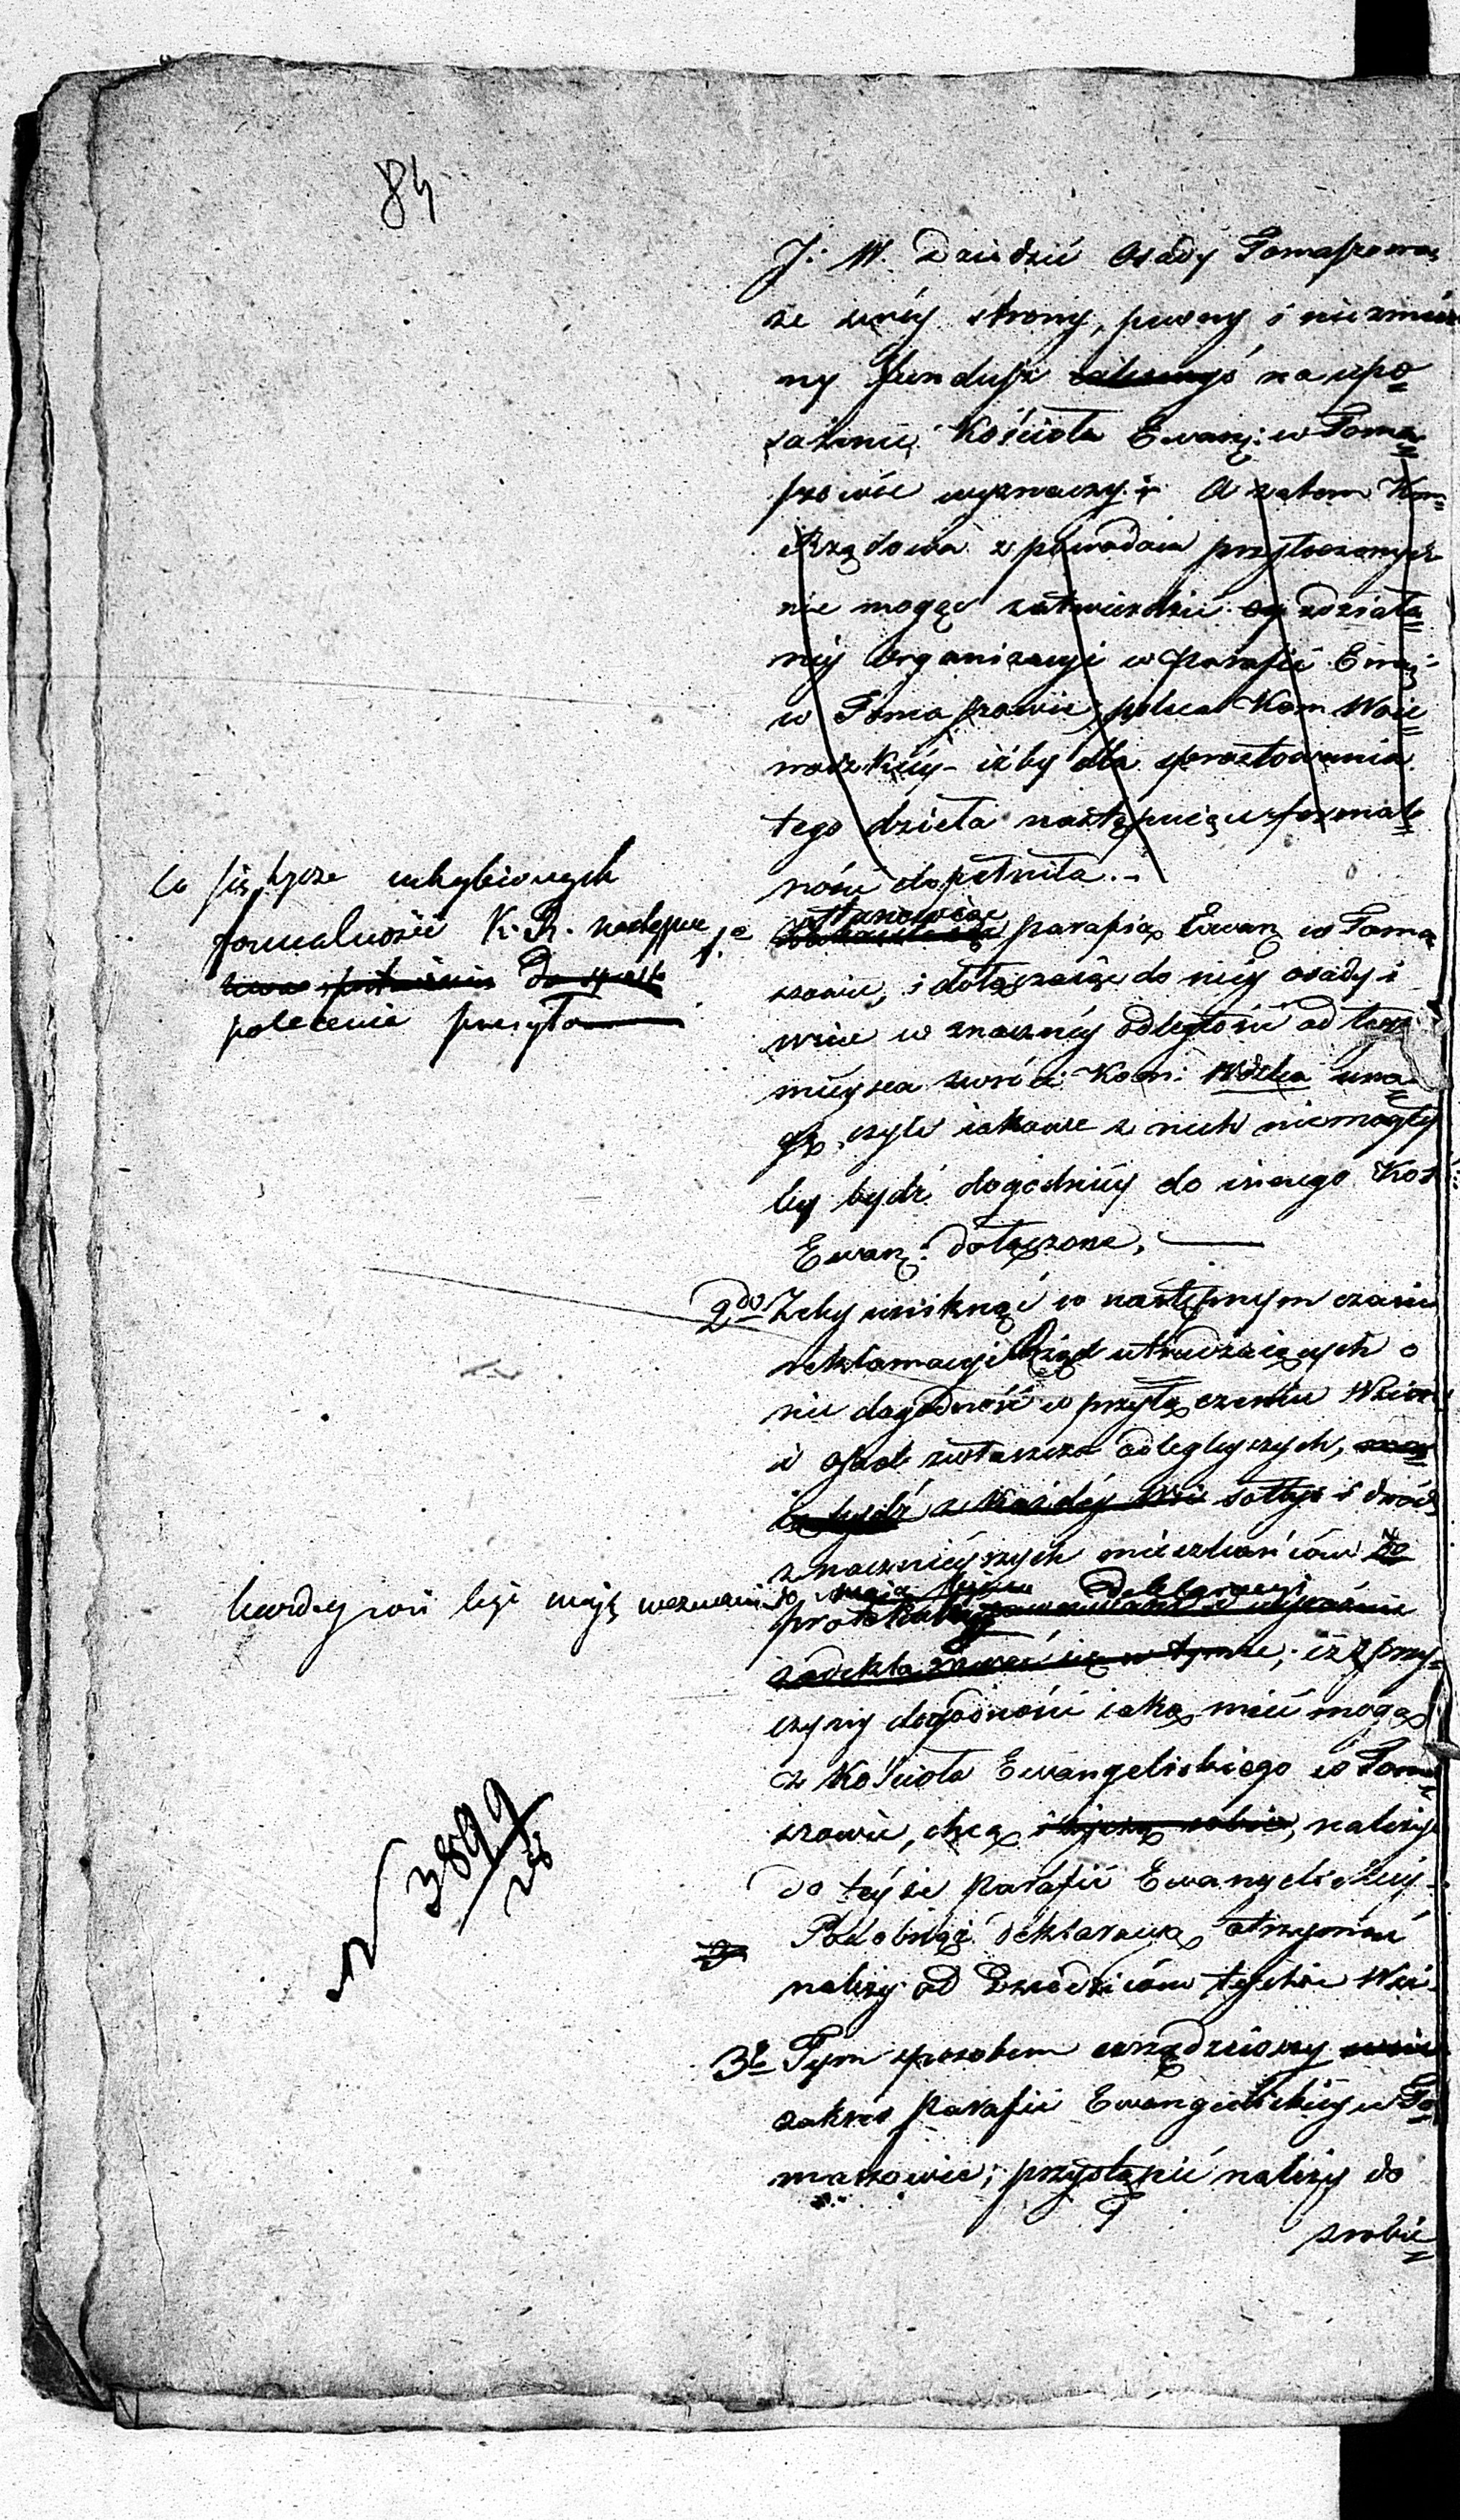 84
J: W. Dziedzic Osady Tomaszowa,
ze swéy strony, pewny i niezmien
ny fundusz na upo=
sażenie Kościoła Ewang: w Toma=
szowie wyznaczy. A zatem Kom=
Rządowa z powodów przytoczonych
nie mogąc zatwierdzić zdziała=
néy Organizacyi w Parafii Ewaj:
w Tomaszowie, poleca Kom Woie=
wodzkiéy iżby dla sprostowania
tego dzieła następuiące formal=
ności dopełniła. –
Co się tycze uchybionych
formalności K. R. następne
polecenia przesyła
1e stanowiąc parafią Ewan w Toma
szowie, i dołączaiąc do niéy osady i
wsie w znacznéy odległości od tego
mieysca zwróci Kom: Wdzka uwa=
gę, czyli iakowe z nich niemogły
by bydź dogodniéy do innego Koś
Ewang: dołączone. —
2do Żeby uniknąć w następnym czasie
reklamacyi Rząd utrudzaiących o
nie dogodność w przyłączeniu Wsiów
i osad zwłaszcza odległyszych,
z każdéy Wsi sołtys i dwóch
znacznieyszych mieszkańców do
każdey wsi być mają wezwani do
protokułu deklaracyi
zadeklarować się w tymże, iż z przy=
czyny dogodności iaką mieć mogą
z Kościoła Ewangelickiego w Toma
szowie, chcą należyć
do téyże Parafii Ewangelickiéy.
Podobnąż deklaracyą otrzymać
należy od Dziedziców tychże Wsi.
3e Tym sposobem urządziwszy
zakres Parafii Ewangelickiéy w To=
maszowie; przystąpić należy do
zrobie=
N 3899/26